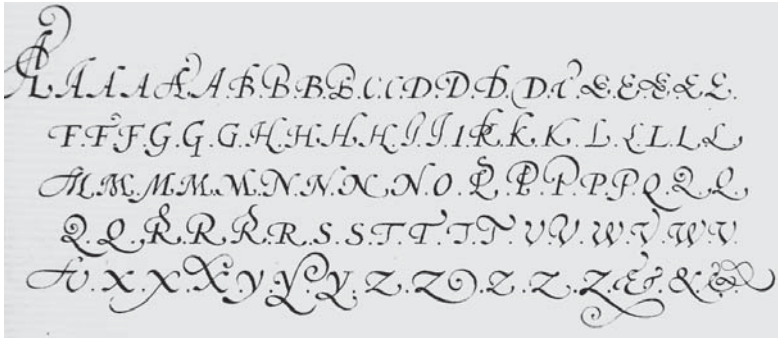 A A A A A A B B B B C C D D D D D E E E E E
F F F G G G H H H H I I I K K K L L L L L
M M M M M N N N N O P P P P P Q Q Q
Q Q R R R R S S T T T T V V W V W V
A X X X Y Y Y Z Z Z Z Z & & &